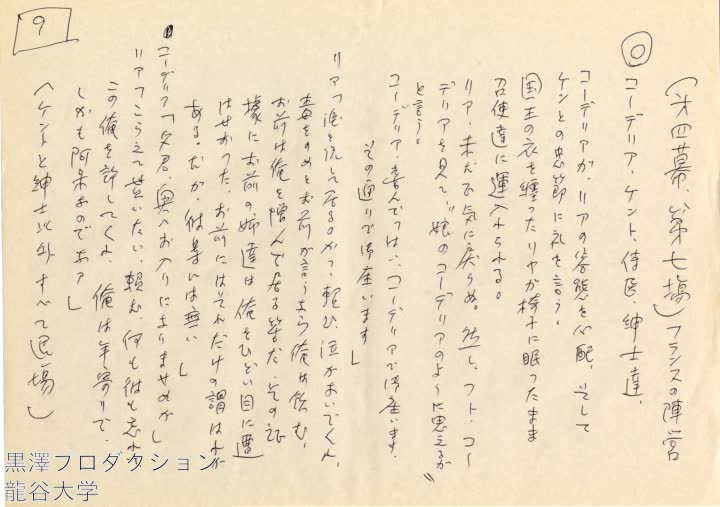 9
(第四幕、第七場)フランスの陣営
◎コーデリア、ケント、侍医、紳士達、
コーデリアが、リアの容態を心配、そして
ケントの忠節に礼を言う。
国王の衣を纏ったリヤが椅子に眠ったまま
召使達に運入れられる。
リア、未だ正気に戻らぬ。然し、フト、コー
デリアを見て、〝娘のコーデリアのように思えるが〟
と言う。
コーデリア、喜んで「はい、コーデリアで御座います、
その通りで御座います」
リア「涙を流して居るのか?頼む、泣かないでくれ、
毒をのめとお前が言うなら俺は飲む、
お前は俺を憎んで居る筈だ、その証
據にお前の姉達は俺をひどい目に遭
はせおった、お前にはそれだけの謂はれが
ある。だが彼等には無い」
コーデリア「父君、奥へお入りになりませぬか」
リア「こらえて貰いたい、頼む、何も彼も忘れ
この俺を許してくれ、俺は年寄りで、
しかも阿呆なのでな」
(ケントと紳士以外すべて退場)
黒澤プロダクション
龍谷大学